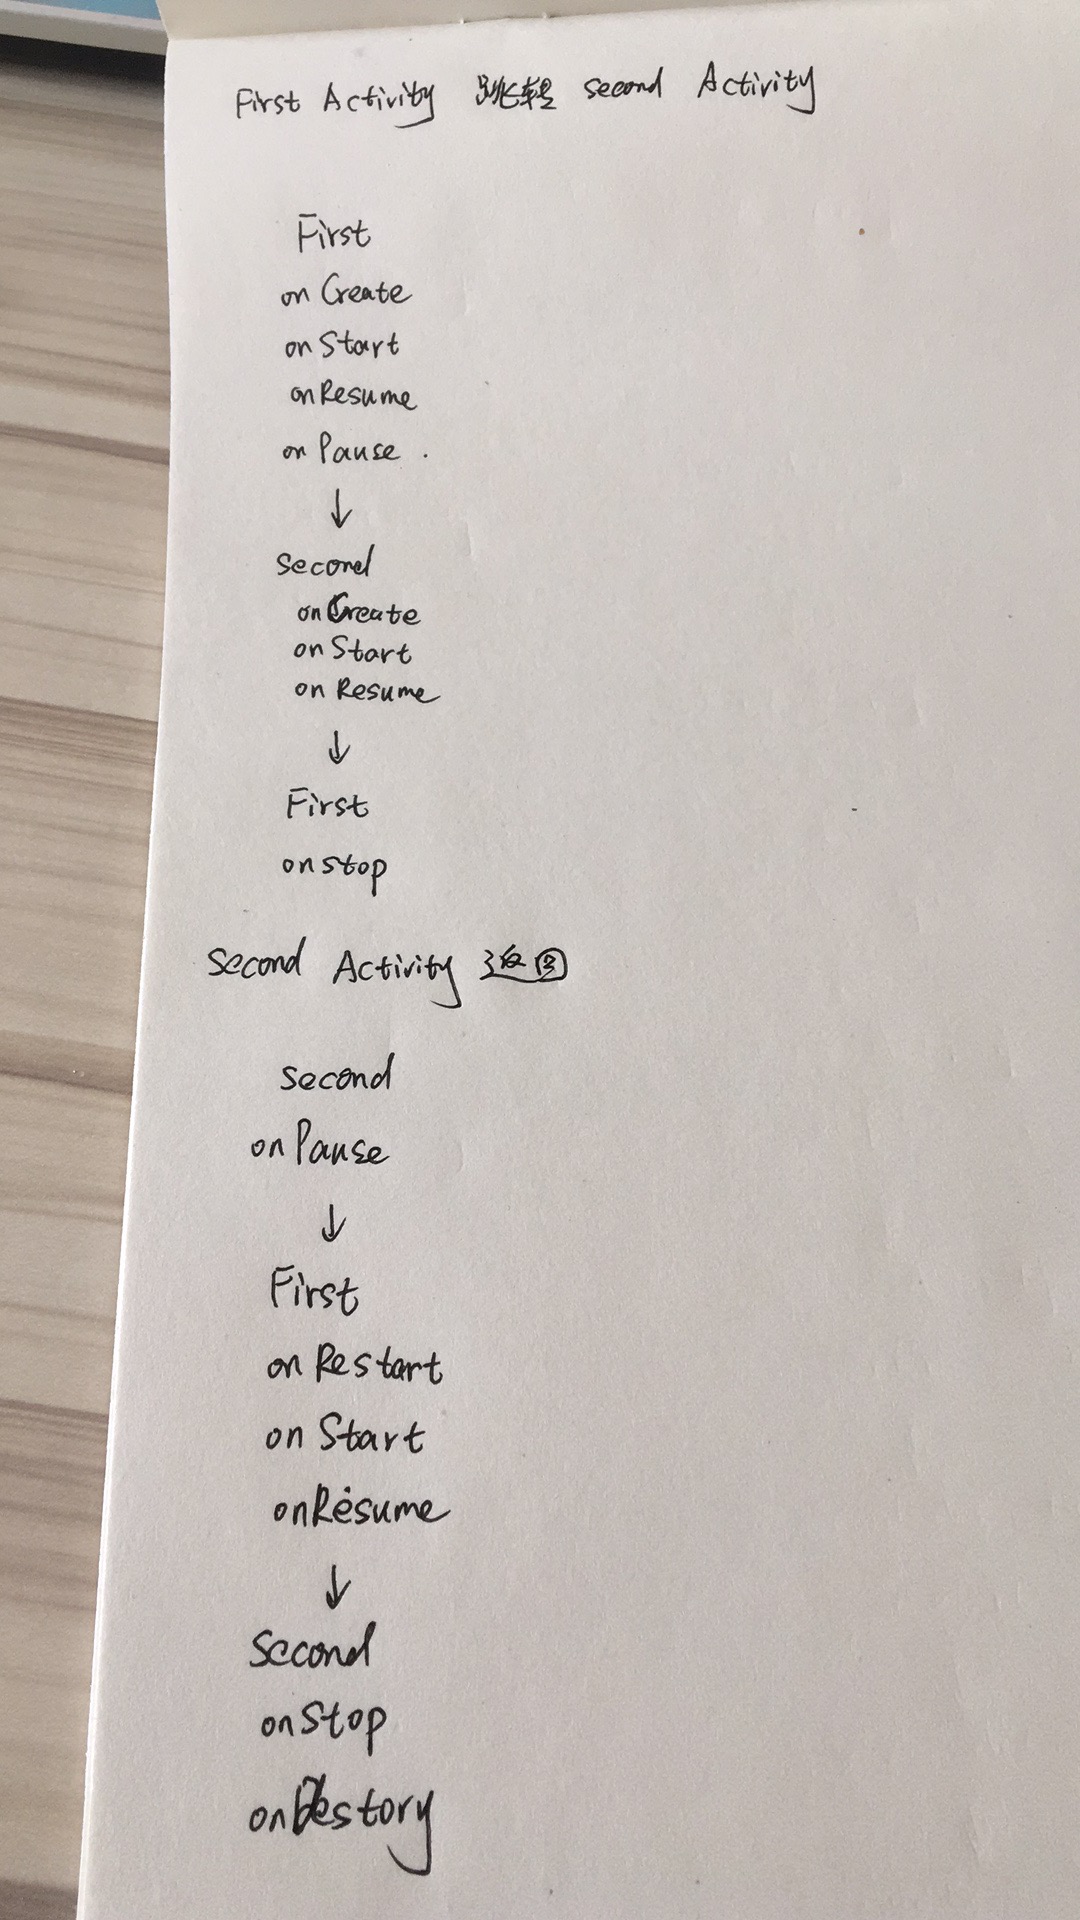 First Activity 跳转 second Activity
First
onCreate
onStart
onResume
onPause.
↓
second
onCreate
onStart
onResume
↓
First
onstop
second Activity 返回
second
onPause
↓
First
onRestart
onStart
onResume
↓
second
onstop
onDestory